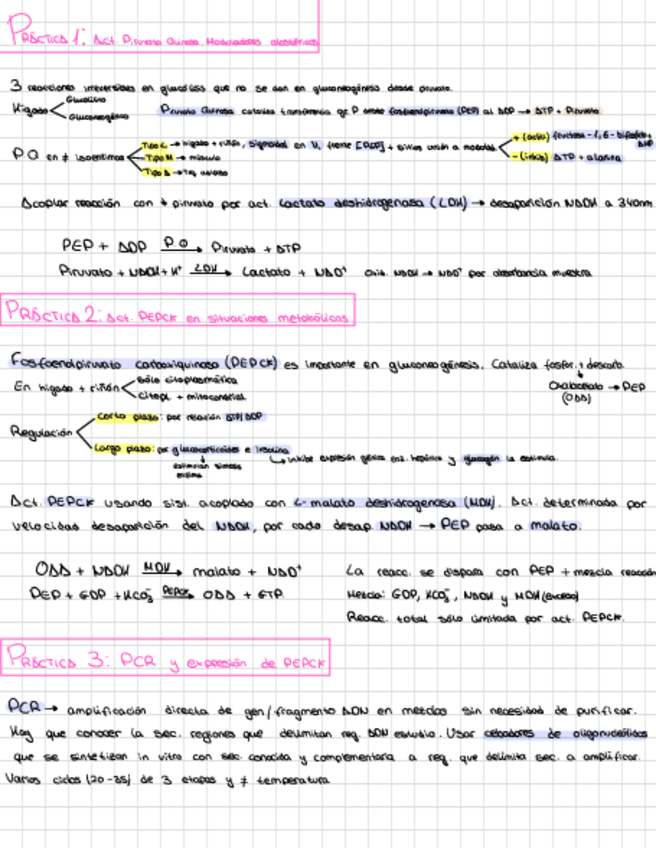 PRÁCTICA 1: Act. Piruvato Quinasa. Moduladores alostéricos
3 reacciones irreversibles en glucólisis que no se dan en gluconeogénesis desde piruvato.
Hígado Glucólisis
Gluconeogénesis
Piruvato Quinasa cataliza transferencia gr. P desde fosfoenolpiruvato (PEP) al ADP → ATP + Piruvato
PQ en ≠ isoenzimas
Tipo L → hígado + riñón, sigmoidal en V. frente [PEP] + sitios unión a modulad.
Tipo M → músculo
Tipo A →
+ (activ) fructosa-1,6-bifosfato
- (inhib) ATP + alanina
Acoplar reacción con ↓ piruvato por act. Lactato deshidrogenasa (LDH) → desaparición NADH a 340nm
PEP + ADP PQ→ Piruvato + ATP
Piruvato + NADH + H⁺ LDH→ Lactato + NAD⁺ Oxid. NADH → NAD⁺ por absorbancia muestra
PRÁCTICA 2: Act. PEPCK en situaciones metabólicas
Fosfoenolpiruvato carboxiquinasa (PEPCK) es importante en gluconeogénesis. Cataliza fosfor. y descarb.
En hígado + riñón
Sólo citoplasmática
Citopl. + mitocondrial
Oxalacetato → PEP
(OAA)
Regulación
Corto plazo: por relación ATP/ADP
Largo plazo: por glucocorticoides e insulina
estimulan síntesis
enzima
inhibe expresión génica enz. hepática y glucagón la estimula.
Act. PEPCK usando sist. acoplado con L-malato deshidrogenasa (MDH). Act. determinada por
velocidad desaparición del NADH, por cada desap. NADH → PEP pasa a malato.
OAA + NADH MDH→ malato + NAD⁺
PEP + GDP + HCO₃⁻ PEPCK→ OAA + GTP
La reacc. se dispara con PEP + mezcla reacción
Mezcla: GDP, HCO₃⁻, NADH y MDH (exceso)
Reacc. total sólo limitada por act. PEPCK.
PRÁCTICA 3: PCR y expresión de PEPCK
PCR → amplificación directa de gen/fragmento ADN en mezclas sin necesidad de purificar.
Hay que conocer la sec. regiones que delimitan reg. ADN estudio. Usar cebadores de oligonucleótidos
que se sintetizan in vitro con sec. conocida y complementaria a reg. que delimita sec. a amplificar.
Varios ciclos (20-35) de 3 etapas y ≠ temperatura